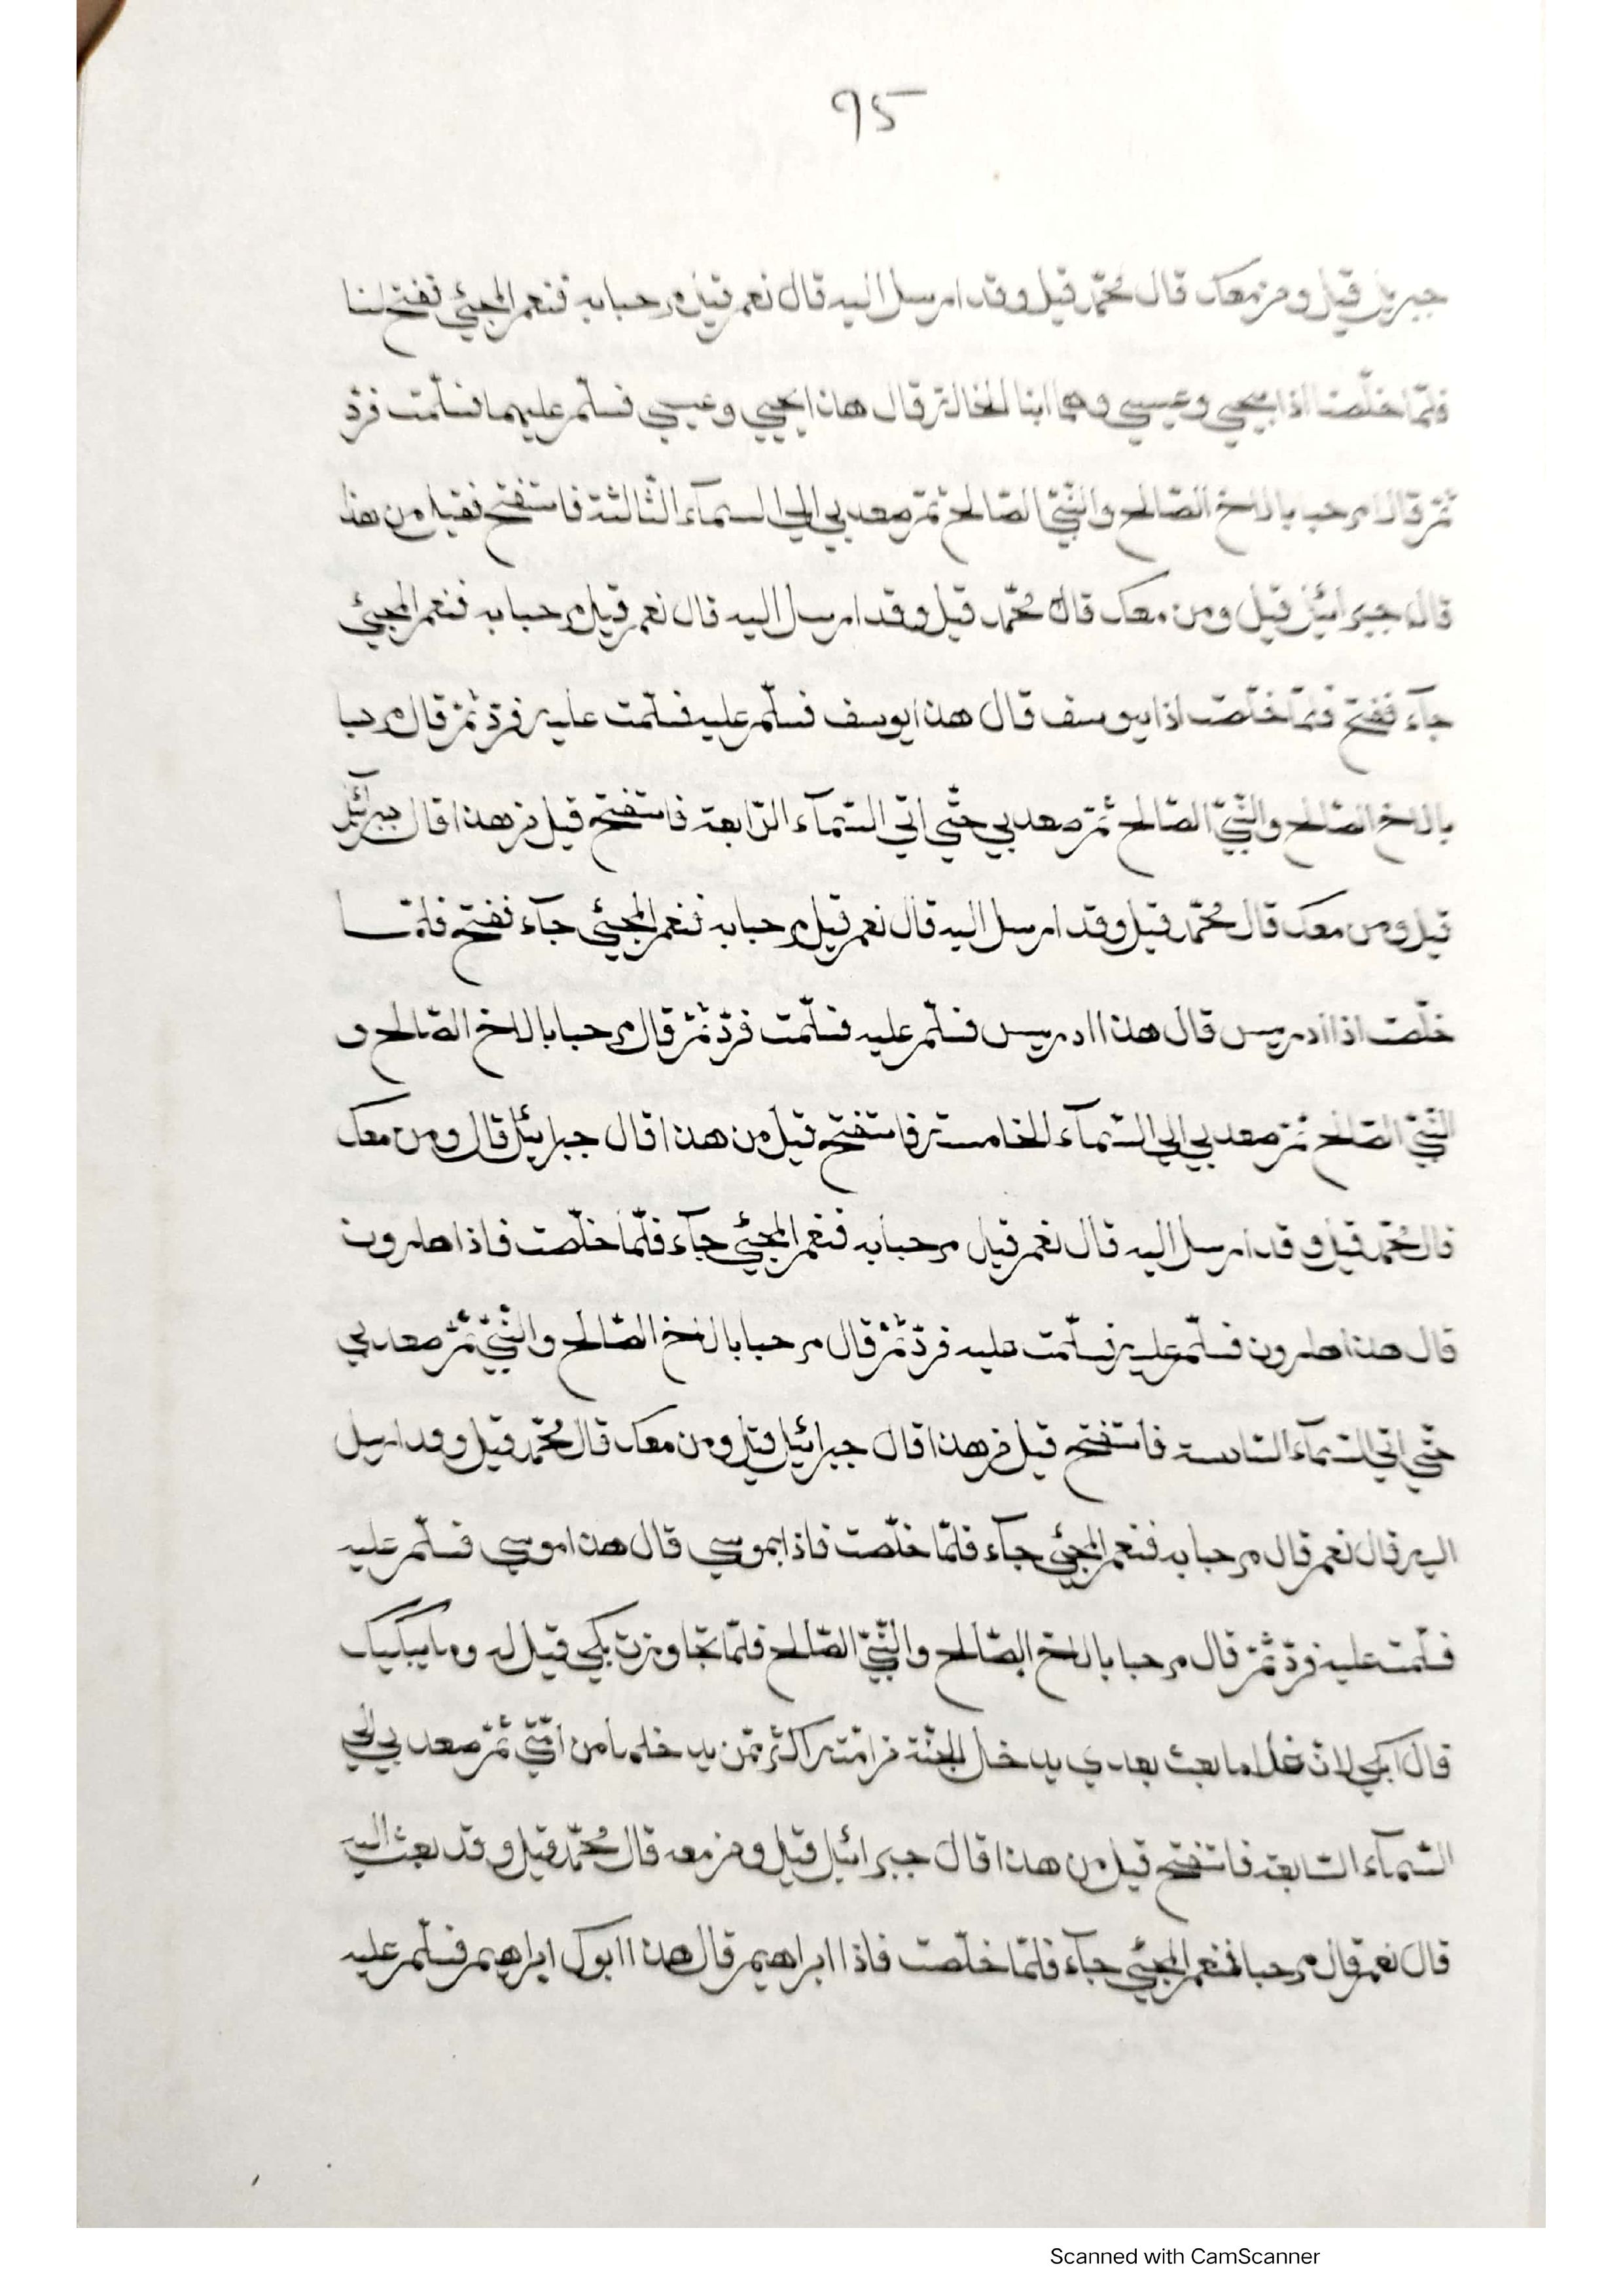 95
جبريل قيل ومن معك قال محمّد قيل وقد ارسل اليه قال نعم قيل مرحبا به فنعم المجيئ ففتح لنا
فلمّا خلّصت اذا بيحيي وعيسي وهما ابنا الخالة قال هذا يحيي وعيسي فسلّم عليهما فسلّمت فردّ
ثمّ قالا مرحبا بالاخ الصّالح والنّبيّ الصّالح ثمّ صعد بي الي السمآء الثّالثة فاستفتح فقيل من هذا
قال جبرائيل قيل ومن معك قال محمّد قيل وقد ارسل اليه قال نعم قيل مرحبا به فنعم المجيئ
جآء ففتح فلمّا خلّصت اذا بيوسف قال هذا يوسف فسلّم عليه فسلّمت عليه فردّ ثمّ قال مرحبا
بالاخ الصّالح والنّبيّ الصّالح ثمّ صعد بي حتّي اتي السّمآء الرّابعة فاستفتح قيل من هذا قال جبرآئيل
قيل ومن معك قال محمّد قيل وقد ارسل اليه قال نعم قيل مرحبا به فنعم المجيئ جآء ففتح فلمّا
خلّصت اذا ادريس قال هذا ادريس فسلّم عليه فسلّمت فردّ ثمّ قال مرحبا بالاخ الصّالح و
النّبيّ الصّالح ثمّ صعد بي الي السّمآء الخامسة فاستفتح قيل من هذا قال جبرايئل قال ومن معك
قال محمّد قيل وقد ارسل اليه قال نعم قيل مرحبا به فنعم المجيئ جآء فلمّا خلّصت فاذا هارون
قال هذا هارون فسلّم عليه فسلّمت عليه فردّ ثمّ قال مرحبا بالاخ الصّالح والنّبيّ ثمّ صعد بي
حتّي اتي السّمآء السّادسة فاستفتح قيل من هذا قال جبرائيل قيل ومن معك قال محمّد قيل وقد ارسل
اليه قال نعم قال مرحبا به فنعم المجيئ جآء فلمّا خلّصت فاذا بموسي قال هذا موسي فسلّم عليه
فسلّمت عليه فردّ ثمّ قال مرحبا بالاخ الصّالح والنّبيّ الصّالح فلمّا تجاوزت بكي قيل له وما يبكيك
قال ابكي لانّ غلاما بعث بعدي يدخل الجنّة من امّته اكثر ممّن يدخلها من امّتي ثمّ صعد بي الي
السّمآء السّابعة فاستفتح قيل من هذا قال جبرائيل قيل ومن معه قال محمّد قيل وقد بعث اليه
قال نعم قال مرحبا فنعم المجيئ جآء فلمّا خلّصت فاذا ابراهيم قال هذا ابوك ابراهيم فسلّم عليه
Scanned with CamScanner